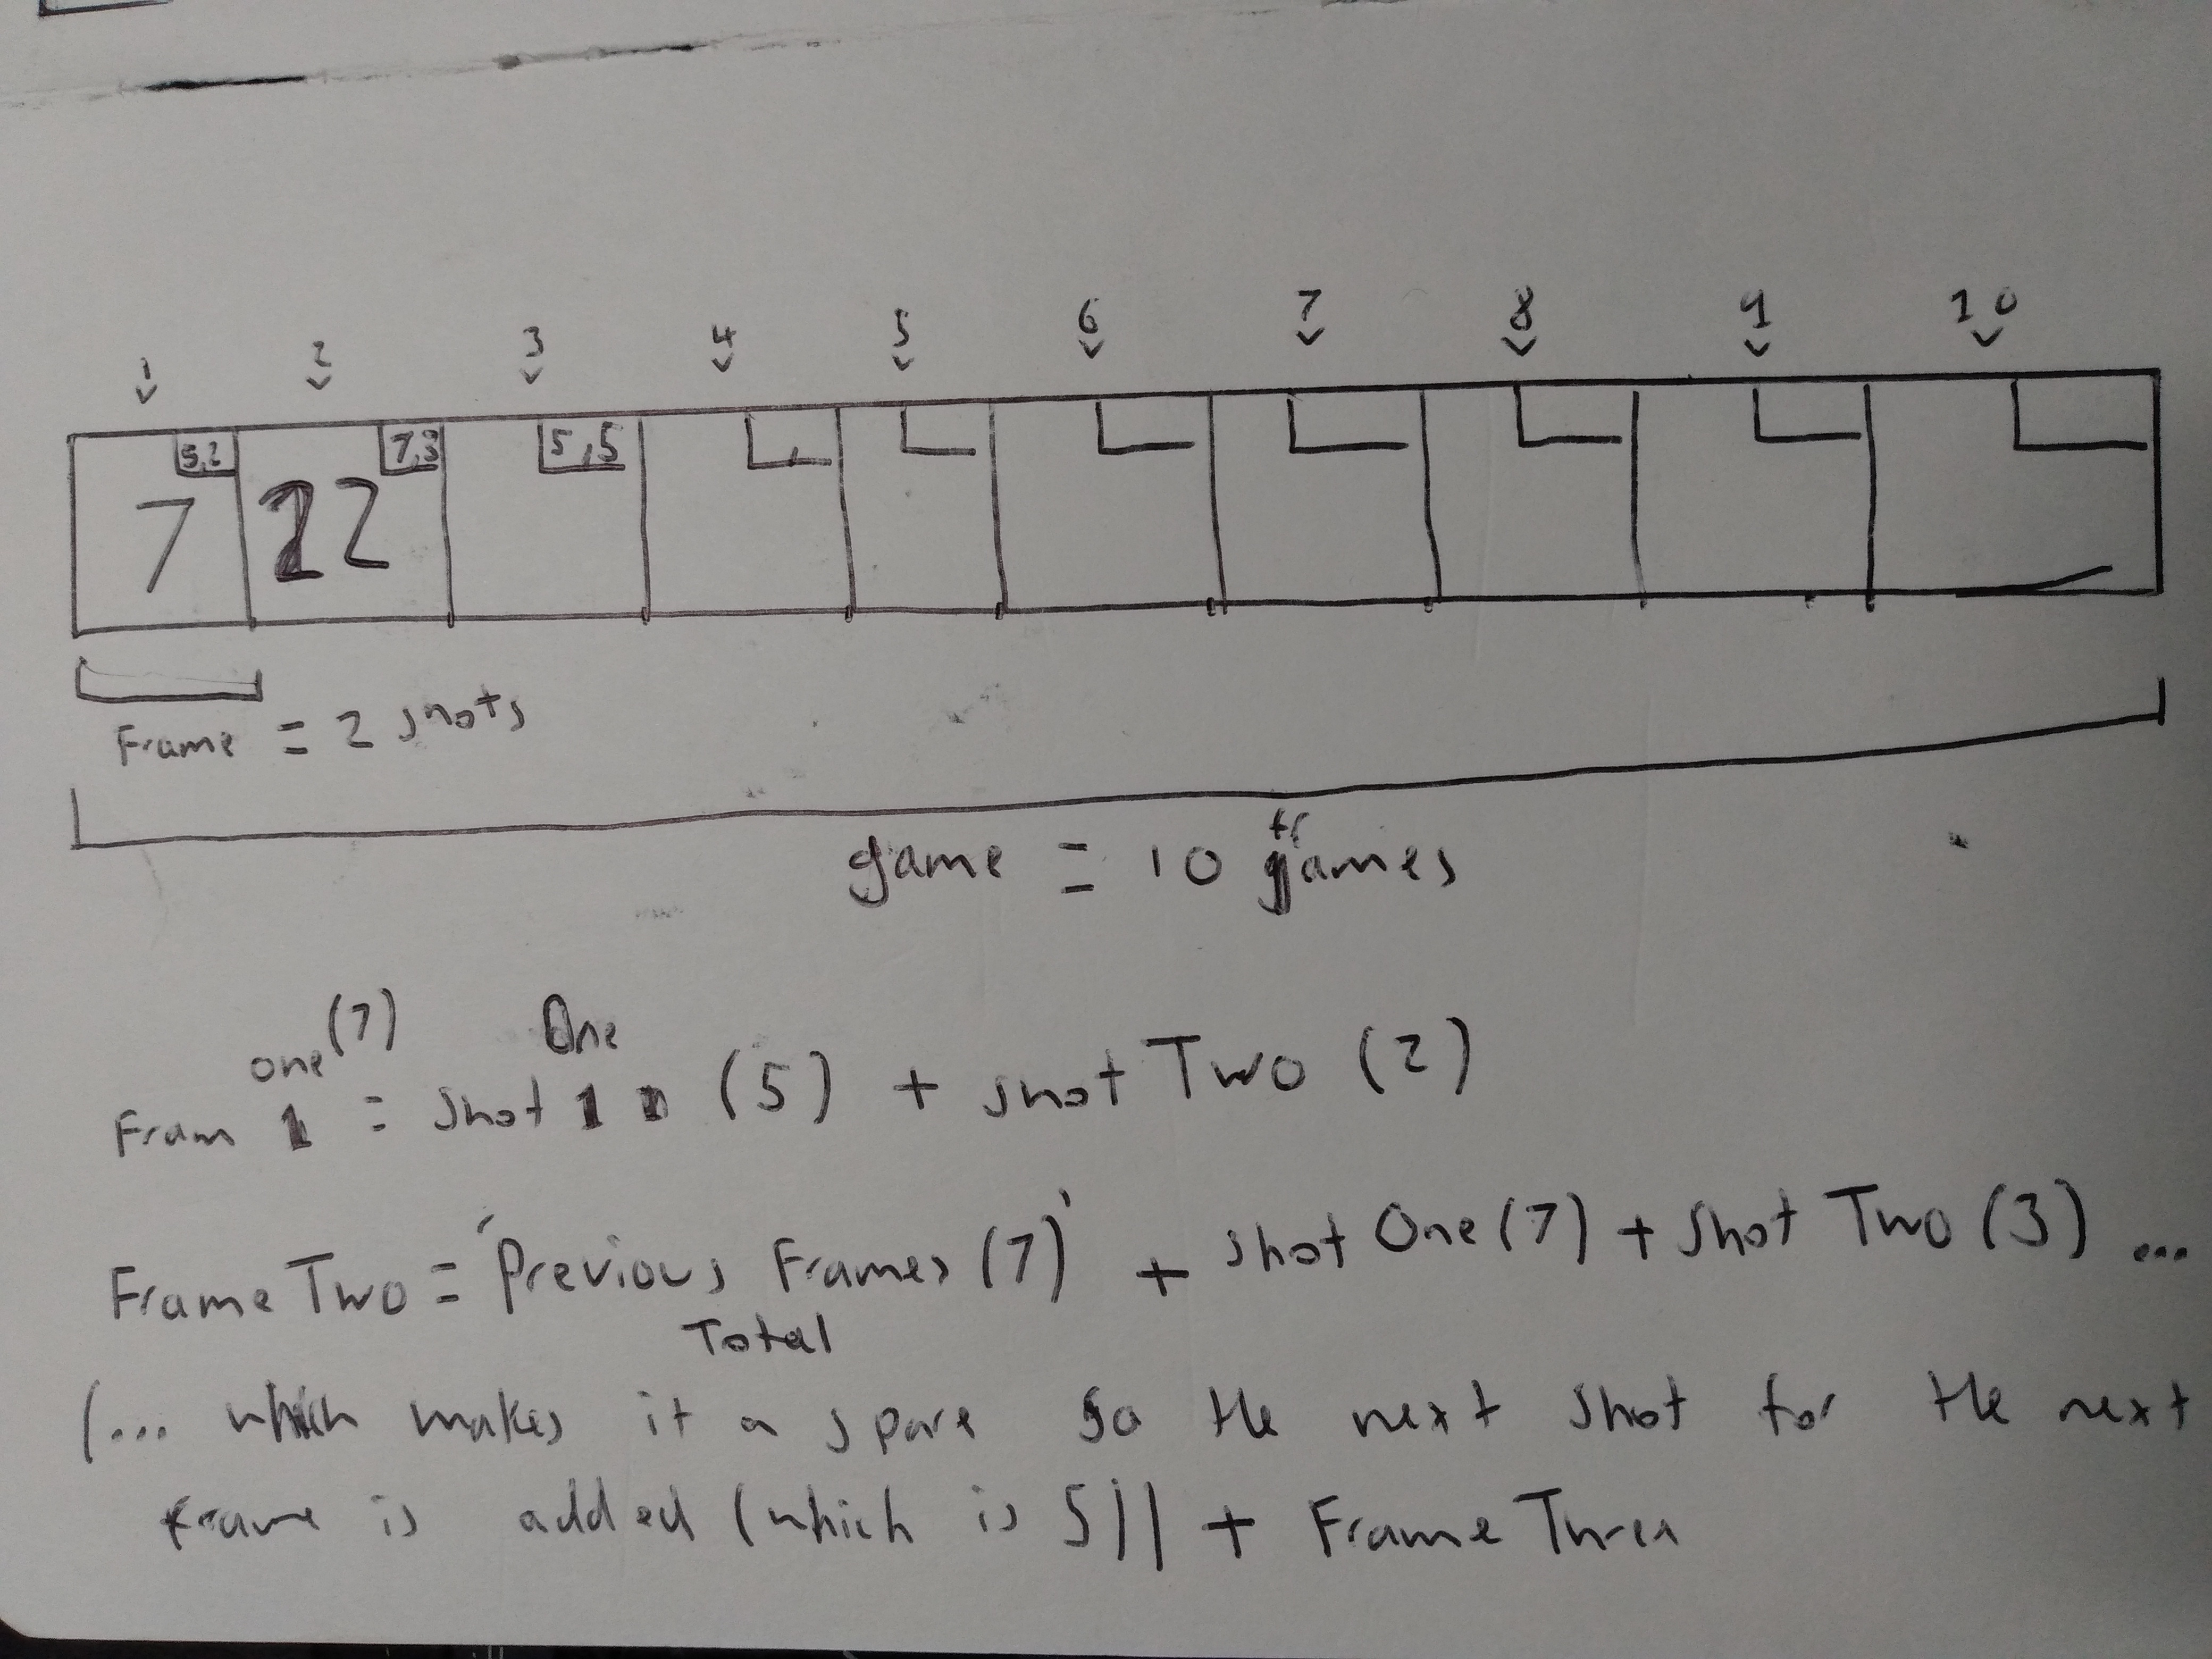 1 2 3 4 5 6 7 8 9 10
5,2 7,3 5,5
7 22
Frame = 2 shots
game = 10 frames
one (7) One
Fram 1 = Shot 1 (5) + shot Two (2)
Frame Two = 'Previous Frames (7)' + shot One (7) + Shot Two (3) ...
Total
(... which makes it a spare so the next shot for the next
frame is added (which is 5)) + Frame Three